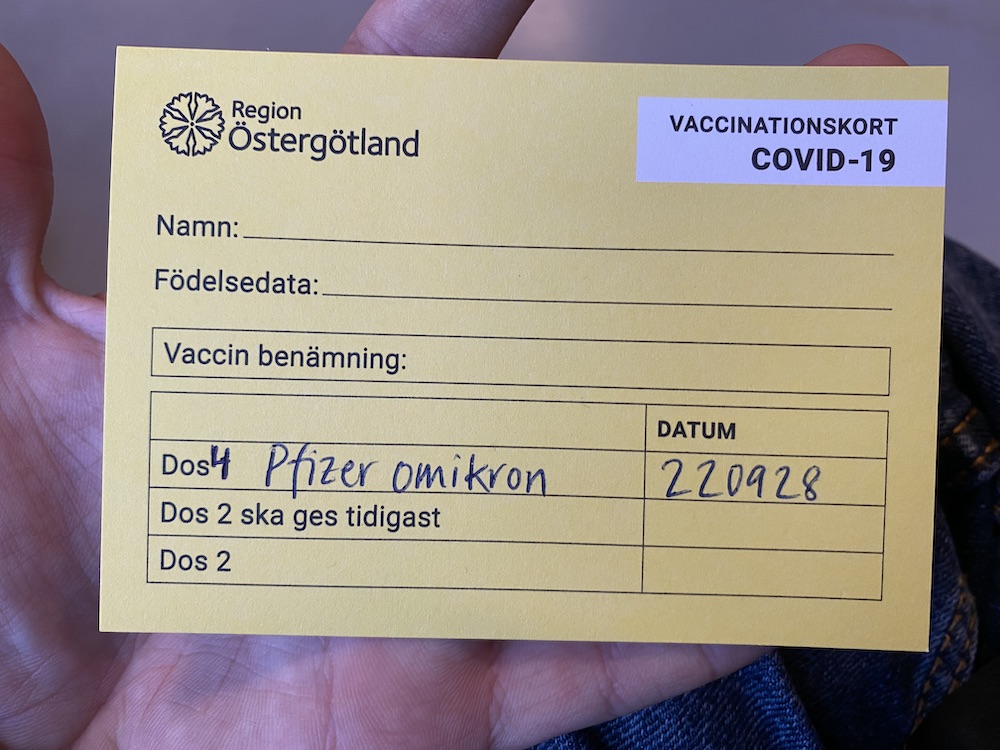 Region
Östergötland
VACCINATIONSKORT
COVID-19
Namn:
Födelsedata:
Vaccin benämning:
DATUM
Dos 4 Pfizer omikron 220928
Dos 2 ska ges tidigast
Dos 2